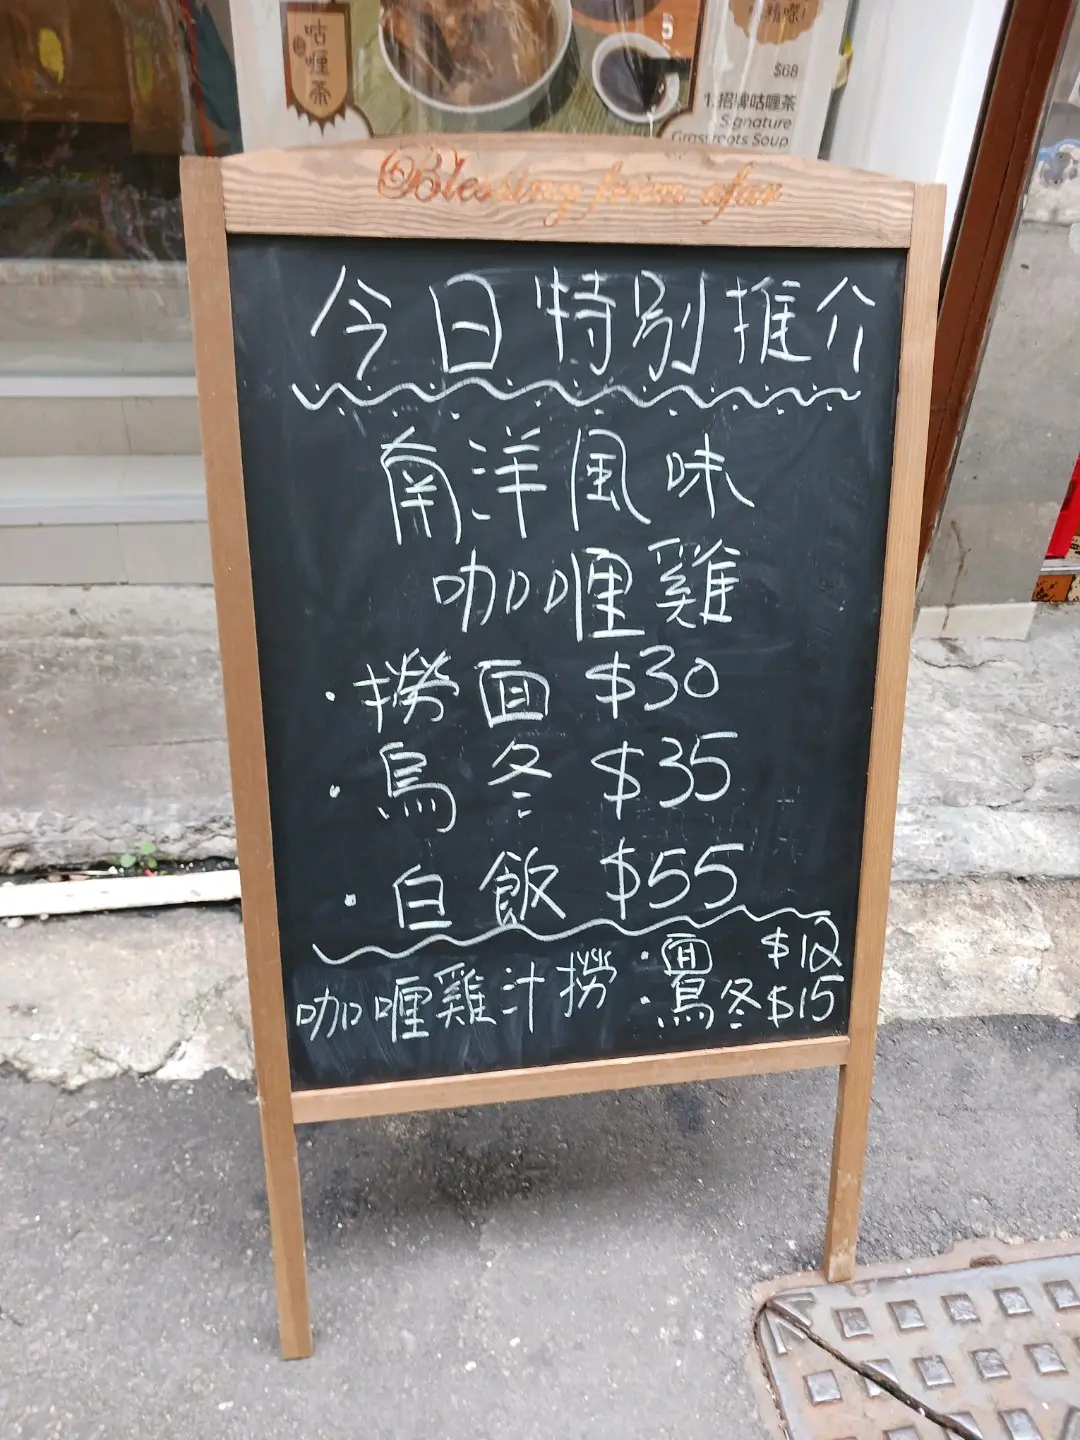 咕喱茶
$68
1.招牌咕喱茶
Signature
Grassroots Soup
Blessing from afar
今日特別推介
南洋風味
咖喱雞
·撈面 $30
·烏冬 $35
·白飯 $55
咖喱雞汁撈 ·面 $12
·烏冬 $15